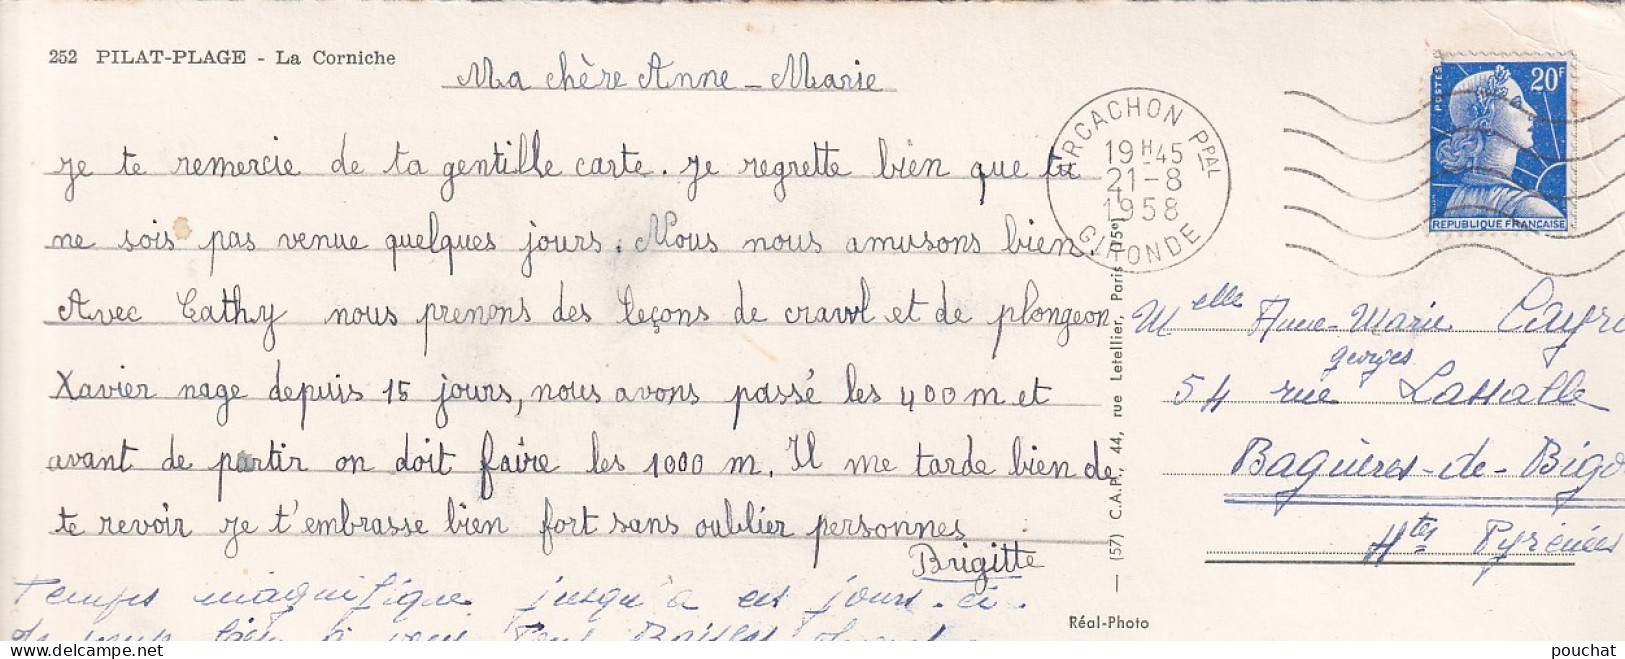 252 PILAT-PLAGE - La Corniche
Ma chère Anne-Marie
je te remercie de ta gentille carte. je regrette bien que tu
ne sois pas venue quelques jours. Nous nous amusons bien.
Avec Cathy nous prenons des leçons de crawl et de plongeon
Xavier nage depuis 15 jours, nous avons passé les 400m et
avant de partir on doit faire les 1000 m. Il me tarde bien de
te revoir je t'embrasse bien fort sans oublier personnes
Brigitte
Temps magnifique jusqu'à ces jours-ci.
(57) C.A.P., 44, rue Letellier, Paris (15e)
Réal-Photo
ARCACHON PPAL
19H45
21-8
1958
GIRONDE
POSTES
20F
REPUBLIQUE FRANÇAISE
Melle Anne-Marie Cayr
georges
54 rue Lassalle
Bagnères-de-Bigo
Htes Pyrénées
pouchat